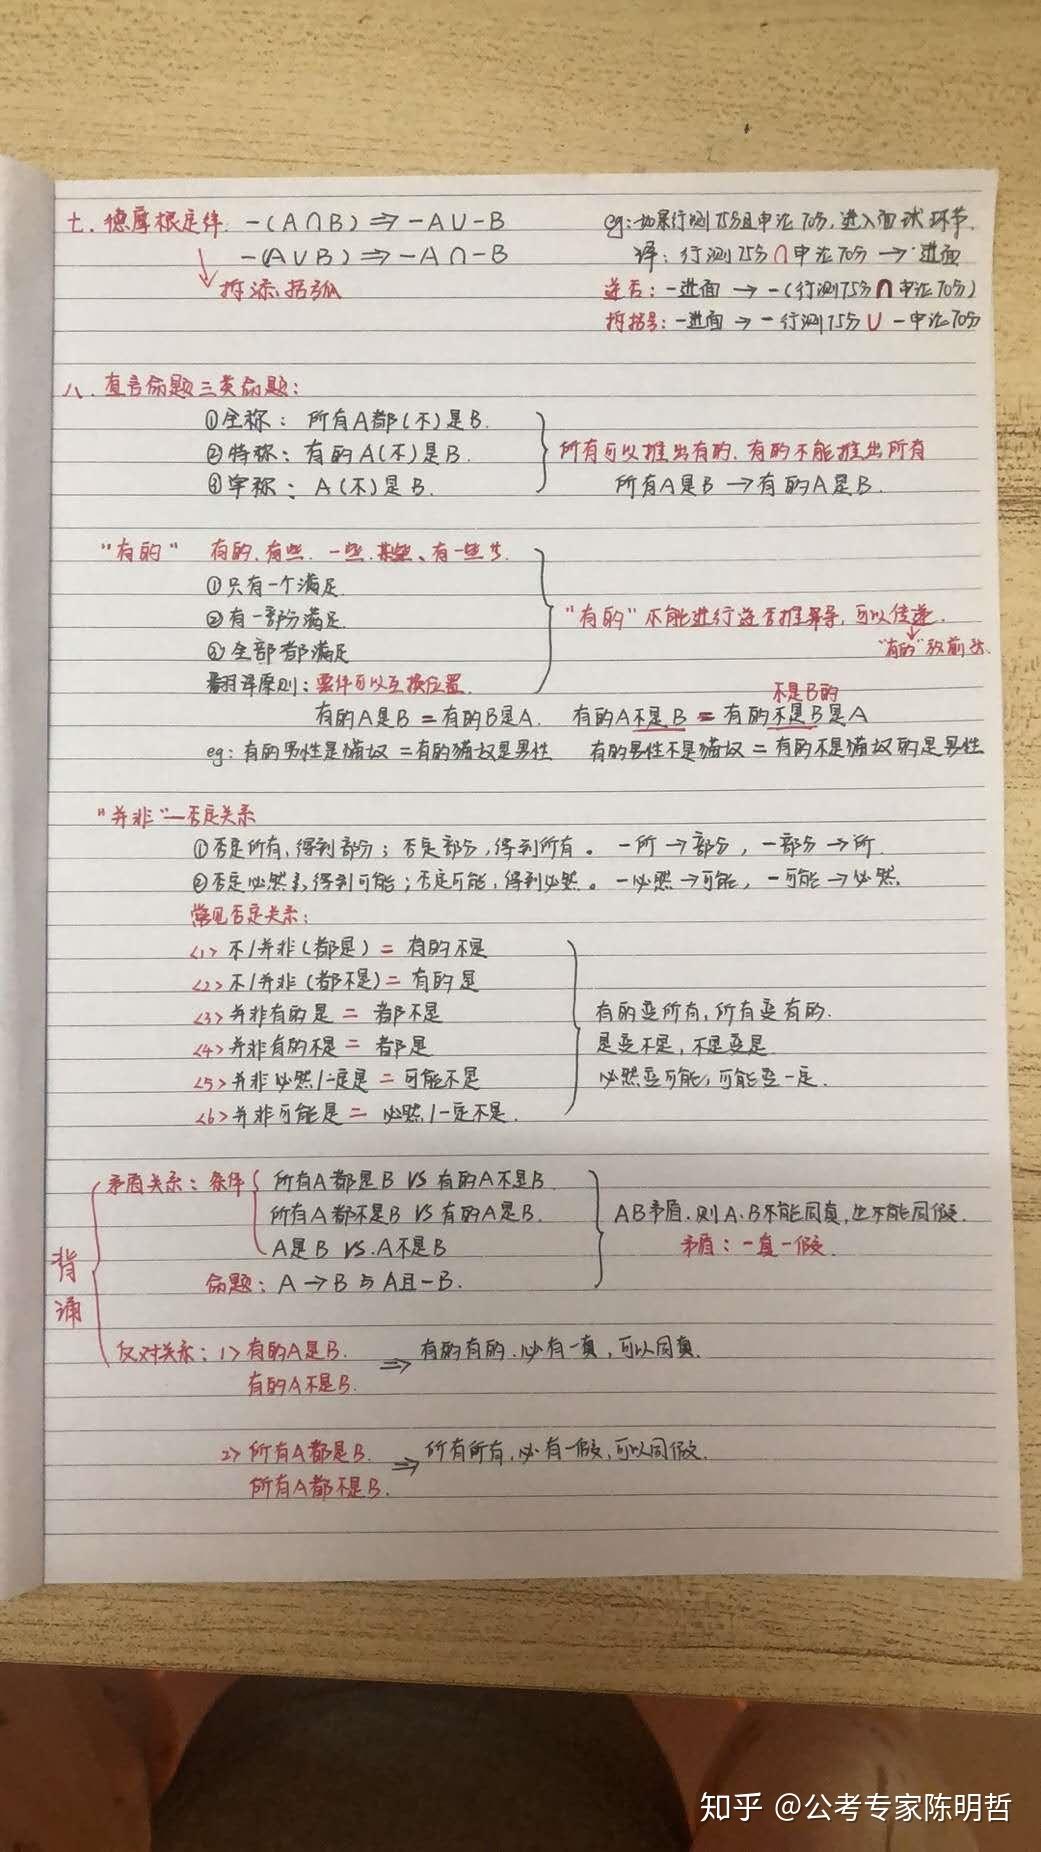 七. 德摩根定律. -(A∩B) ⇒ -A∪-B
eg:如果行测75分且申论70分,进入面试环节.
-(A∪B) ⇒ -A∩-B
译: 行测75分∩申论70分 → 进面
拆添括弧
逆否: -进面 → -(行测75分∩申论70分)
拆括号: -进面 → -行测75分 ∪ -申论70分
八. 直言命题三类命题:
①全称: 所有A都(不)是B.
②特称: 有的A(不)是B.
所有可以推出有的, 有的不能推出所有
③单称: A(不)是B.
所有A是B → 有的A是B.
"有的" 有的、有些、一些、某些、有一些.
①只有一个满足
②有一部分满足
"有的"不能进行逆否推导, 可以传递.
③全部都满足
"有的"放前头.
翻译原则: 要件可以互换位置.
不是B的
有的A是B = 有的B是A. 有的A不是B = 有的不是B是A
eg: 有的男性是猫奴 = 有的猫奴是男性 有的男性不是猫奴 = 有的不是猫奴的是男性
"并非"—否定关系
①否定所有,得到部分; 否定部分,得到所有。 -所→部分, -部分→所.
②否定必然,得到可能; 否定可能,得到必然。 -必然→可能, -可能→必然.
常见否定关系:
<1> 不/并非(都是) = 有的不是
<2> 不/并非(都不是) = 有的是
<3> 并非有的是 = 都不是
有的变所有, 所有变有的.
<4> 并非有的不是 = 都是
是变不是, 不是变是
<5> 并非必然/一定是 = 可能不是
必然变可能, 可能变一定.
<6> 并非可能是 = 必然/一定不是.
背诵
矛盾关系: 条件 所有A都是B VS 有的A不是B
所有A都不是B VS 有的A是B.
AB矛盾, 则A、B不能同真, 也不能同假.
A是B VS. A不是B
矛盾: 一真一假.
命题: A→B与A且-B.
反对关系: 1> 有的A是B. ⇒ 有的有的, 必有一真, 可以同真.
有的A不是B.
2> 所有A都是B. ⇒ 所有所有, 必有一假, 可以同假.
所有A都不是B.
知乎 @公考专家陈明哲